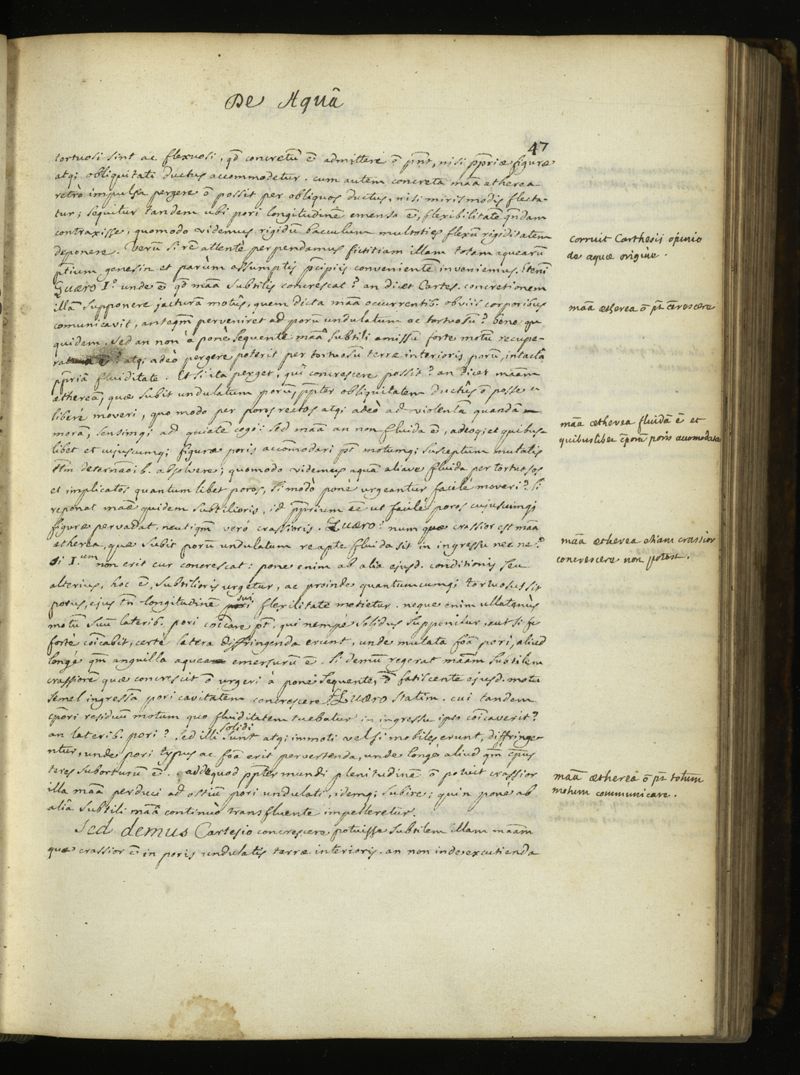 De Aquâ
47
tortuosi sint ac flexuosi, qd concretū ē admittere ō pnt, nisi ppriæ figuræ
atqi obliquitati ductus accommodetur. cum autem concreta māa ætherea
retrò impulsa pergere ō possit per obliquos ductus, nisi miris modis flecta-
tur; sequitur tandem ubi pori longitudinē emensa ē, flexibilitatē qndam
contraxisse, quomodo videmus rigidū bacculum multoties flexū rigiditatem
deponere. Verū si rē attentè perpendamus fictitiam illam totam aquearū
ptium genesin et parùm assumptis pcipiis convenientē inveniemus. etenī
Quæro 1º unde ē qd māa subtilis concrescat? an dicet Cartes. concretionem
illā supponere jacturā motus, quem dicta māa occurrentib. obviis corporibus
comunicavit, anteqm perveniret ad porū undulatum ac tortuosū? benè
quidem. sed an non à ponè sequente māa subtili amissū fortè motū recupe-
atqi adeò pergere poterit per tortuosū terræ interioris porū, intactâ
ppriâ fluiditate. Et si ita perget, quî concrescere possit? an dicet māam
ætheream, quæ subit undulatum porū, ppter obliquitatem ductûs ō posse
liberè moveri, quomodo per poros rectos atqi adeò ad violentā quandā
morā, sensimqi ad quietē cogi: sed māa an non fluida ē, adeoqi et quibus-
libet et cujuscumqi figuræ poris accommodari pt motumqi susceptum mutatis
adsolvere; quomodo videmus aquā aliave fluida per tortuosos
et implicatos quantumlibet poros, si modò ponè urgeantur facilè moveri? Si
reponat māæ quidem subtilioris, id pprium ēe ut facilè poros cujuscumqi
figuræ pervadat, neutiqm verò crassioris. Quæro: num quæ crassior est māa
ætherea, quæ subit porū undulatum reapte fluida sit in ingressu nec ne?
Si 1.um non erit cur concrescat: ponè enim ab alia ejusd. conditionis seu
alterius, hoc ē, subtilioris urgetur, ac proinde quantumcumqi tortuosus sit
porus, ejus tn longitudinē sui flexilitate metietur. neque enim ullatenus
motū suū laterib. pori coīcare pt, qui nempe solidus supponitur, aut si
fortè coīcabit, certè latera diffringenda erunt, unde mutata foā pori, aliud
longè qm anguilla aquea emersurū ē. si demū regerat māam subtilem
crassiorē quæ concrescit ō urgeri à ponè sequente, fatiscente ejusd. motu
semel ingressā pori cavitatem concrescere Quæro statim. cui tandem
cpori residuū motum quo fluiditatem tuebatur in ingressu ipso coīcaverit?
an laterib. pori? sed illi solidi sunt atqi immoti vel si mobiles erunt, diffringe-
ntur, unde pori typus ac foā erit pervertenda, unde longè aliud qm cpus
teres suborturū ē. addequod ppter mundi plenitudinē ō potuit crassior
illa māa perduci ad ostiū pori undulati, idemqi subire; quin ponè ab
aliâ subtili māa continuò transfluente impelleretur.
Sed demus Cartesio concrescere potuisse subtilem illam māam
quæ crassior ē in poris undulatis terræ interioris. an non inde excutienda
corruit Carthesii opinio
de aquæ origine.
māa ætherea ō pt cōcrescere
māa ætherea fluida ē et
quibuslibet cporū poris accomodata
māa ætherea etiam crassior
concrescere non potest.
māa ætherea ō pt totum
motum communicare.